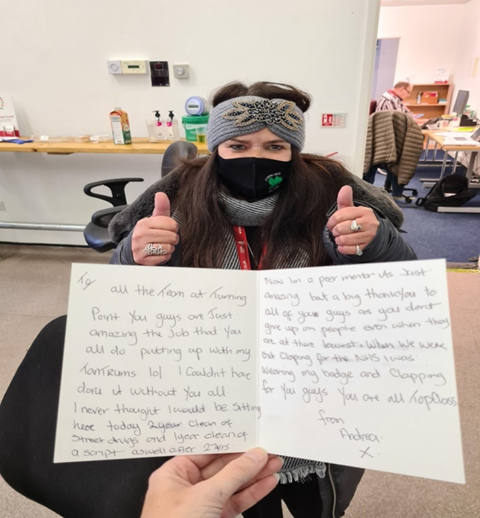 To
all the Team at Turning
Point you guys are Just
amazing the Job that you
all do putting up with my
TanTrums lol I Couldnt have
done it without You all
I never thought I would be sitting
here today 2 year clean of
Street drugs and 1 year clean of
a script aswell after 27yrs
Now Im a peer mentor its Just
amazing but a big thankyou to
all of your guys as you dont
give up on people even when they
are at there lowest. When we were
out Claping for the NHS I was
wearing my badge and Clapping
for you guys You are all TopClass
from
Andrea
x